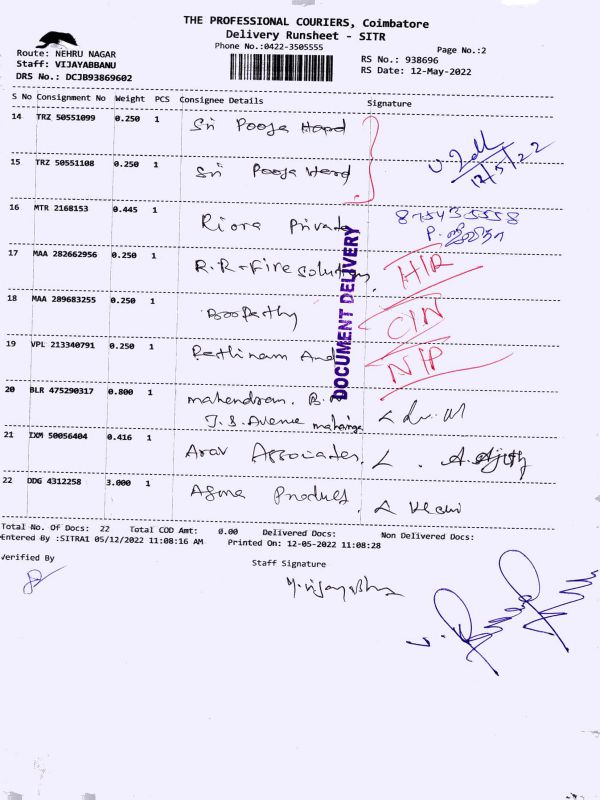 THE PROFESSIONAL COURIERS, Coimbatore
Delivery Runsheet - SITR
Phone No.:0422-3505555
Page No.:2
Route: NEHRU NAGAR
Staff: VIJAYABBANU
DRS No.: DCJB93869602
RS No.: 938696
RS Date: 12-May-2022
S No Consignment No Weight PCS Consignee Details Signature
14 TRZ 50551099 0.250 1 Sri Pooja Hard
15 TRZ 50551108 0.250 1 Sri Pooja Hard
12/5/22
16 MTR 2168153 0.445 1 Riora Private
P. ஜீவிதா
17 MAA 282662956 0.250 1 R.R-Fire Solution, H/R
18 MAA 289683255 0.250 1 Boopathy C/N
19 VPL 213340791 0.250 1 Rethinam And N/P
DOCUMENT DELIVERY
20 BLR 475290317 0.800 1 mahendran. B.
J.S. Avenue
21 IXM 50056404 0.416 1 Arav Associates. A. Ajith
22 DDG 4312258 3.000 1 Agma Product.
Total No. Of Docs: 22 Total COD Amt: 0.00 Delivered Docs: Non Delivered Docs:
Entered By :SITRA1 05/12/2022 11:08:16 AM Printed On: 12-05-2022 11:08:28
Verified By
Staff Signature